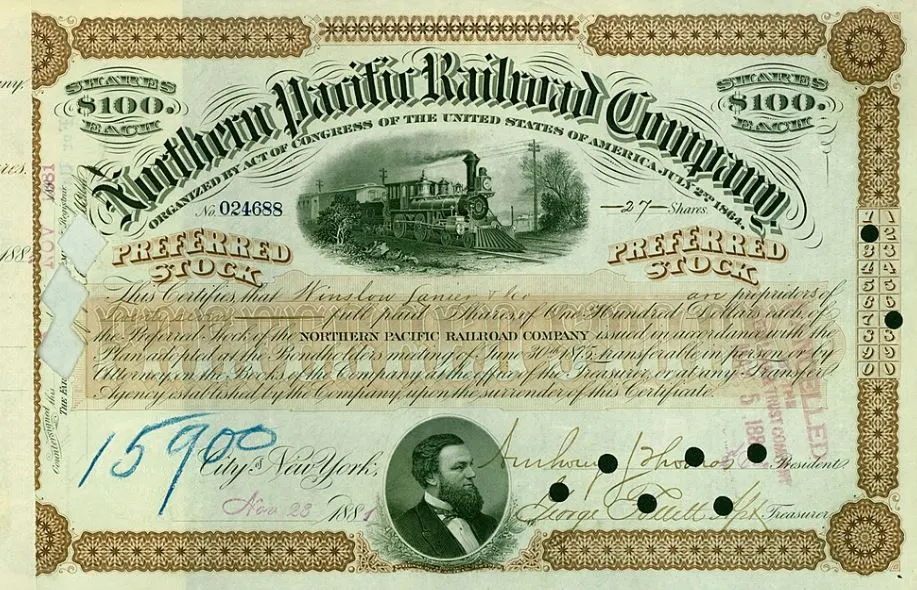 SHARES
$100.
EACH
SHARES
$100.
EACH
Northern Pacific Railroad Company,
ORGANIZED BY ACT OF CONGRESS OF THE UNITED STATES OF AMERICA, JULY 2ND 1864.
No. 024688
—27— Shares.
PREFERRED
STOCK
PREFERRED
STOCK
This Certifies that Winslow Lanier & Co are proprietors of
full paid Shares of One Hundred Dollars each, of
the Preferred Stock of the NORTHERN PACIFIC RAILROAD COMPANY issued in accordance with the
Plan adopted at the Bondholders meeting of June 30th 1875, transferable in person or by
Attorney, on the Books of the Company at the office of the Treasurer, or at any Transfer
Agency established by the Company, upon the surrender of this Certificate.
15900
City of New York,
Nov 23 1881
President.
George Treasurer.
1 1
2
3 3
4 4
5 5
6 6
7
8 8
9 9
0 0
Countersigned this
NOV
1881
188
THE
TRUST COMPANY